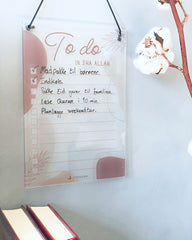 To do
IN SHA ALLAH
Madpakke til børnene.
Indkøb.
Købe Eid gaver til familien.
Læse Quran i 10 min.
Planlægge weekendtur.